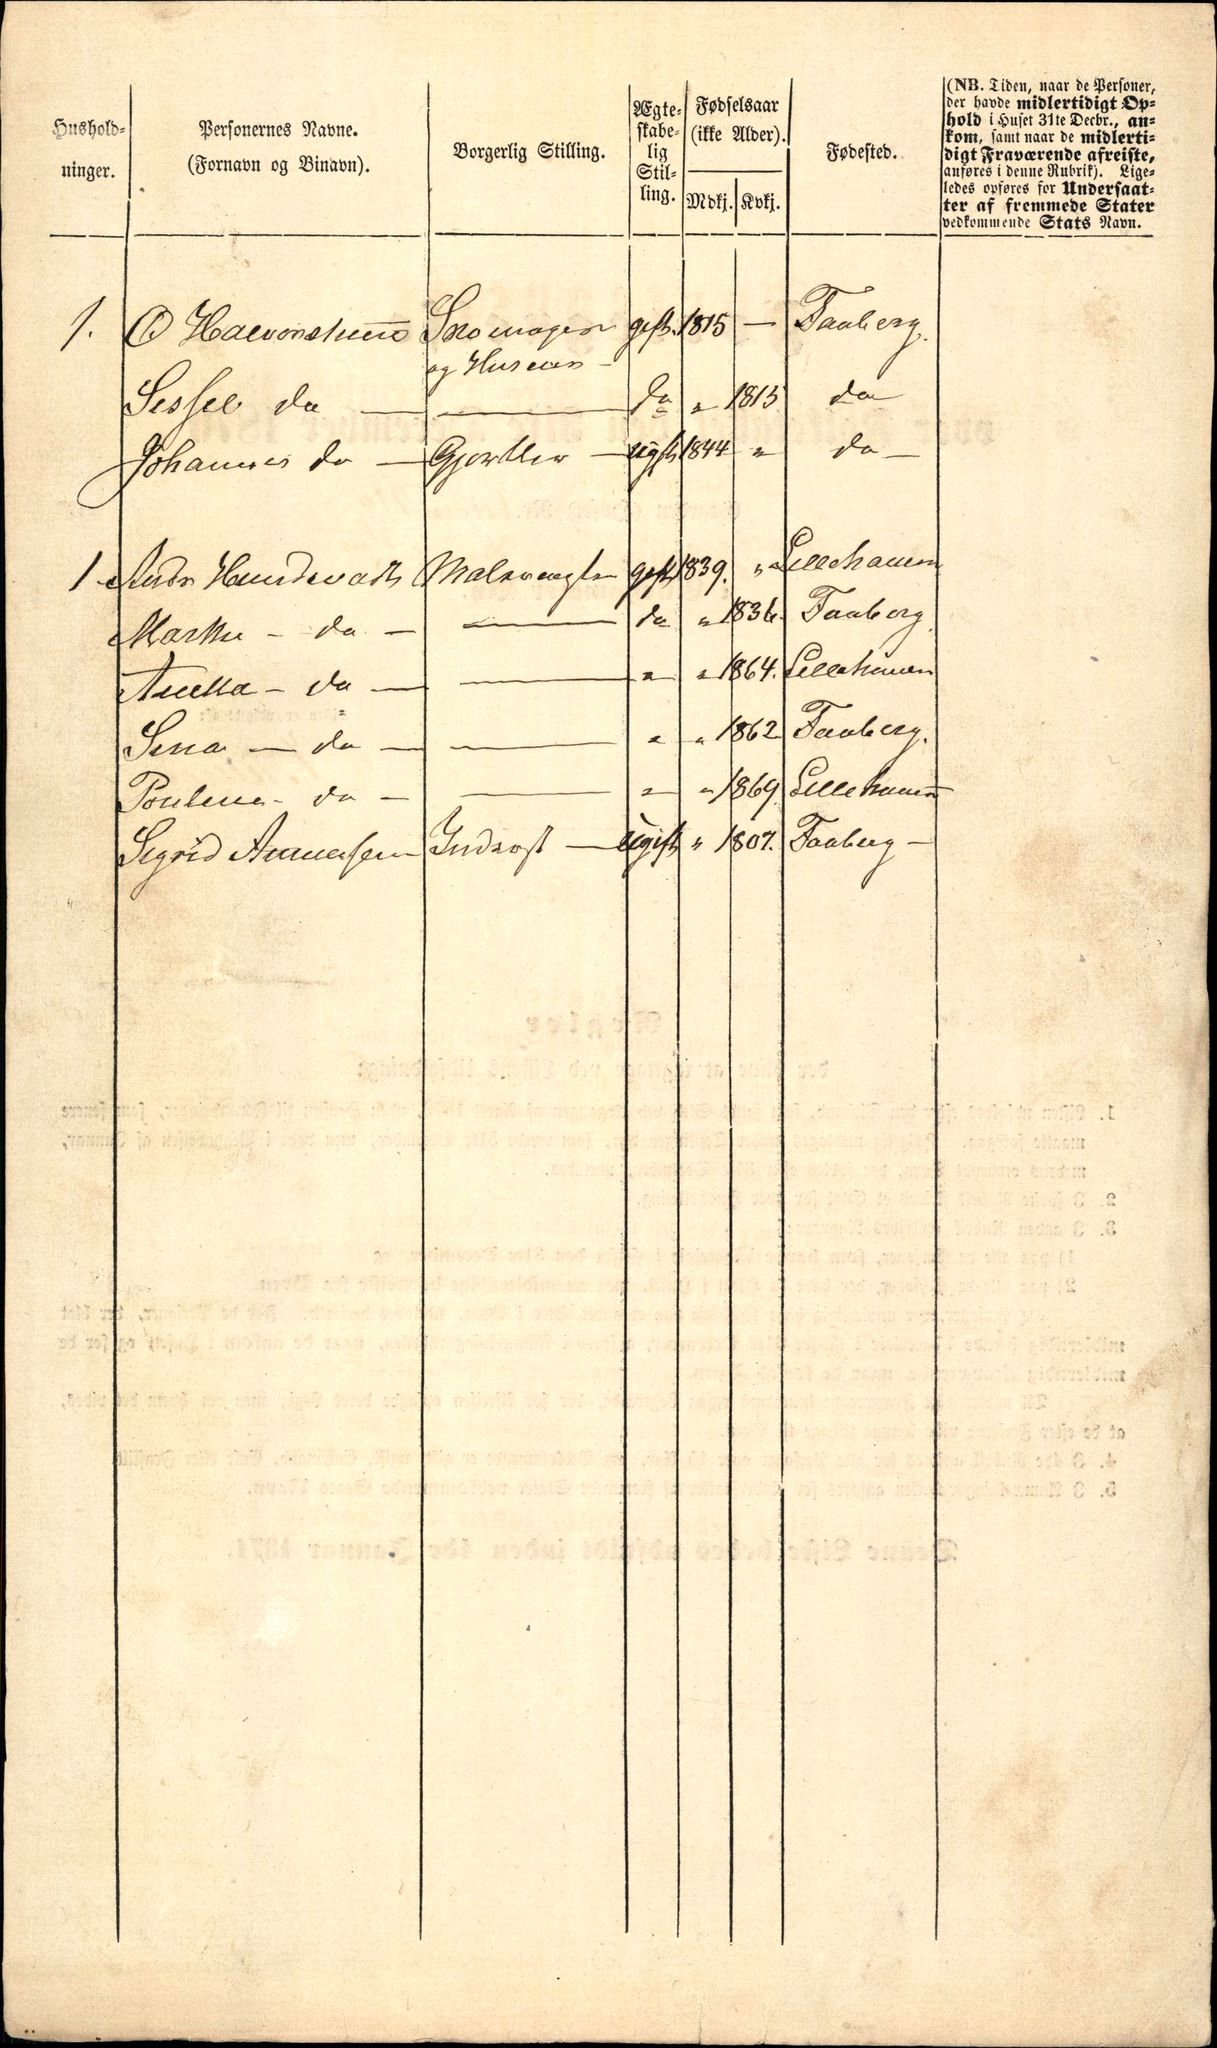 Hushold-
ninger.
Personernes Navne.
(Fornavn og Binavn).
Borgerlig Stilling.
Ægte-
skabe-
lig
Stil-
ling.
Fødselsaar
(ikke Alder).
Mdkj. Kvkj.
Fødested.
(NB. Tiden, naar de Personer,
der havde midlertidigt Op-
hold i Huset 31te Decbr., an-
kom, samt naar de midlerti-
digt Fraværende afreiste,
anføres i denne Rubrik). Lige-
ledes opføres for Undersaat-
ter af fremmede Stater
vedkommende Stats Navn.
1. O Skomager gift 1815 — Faaberg.
og
Sessel do — — do „ 1815 do
Johannes do — Gjørtler — ugft 1844 „ do —
1 Andr gift 1839. „ Lilleham̄
Marthe — do — — do „ 1836. Faaberg
do — — „ „ 1864. Lillehamer
Sina — do — — „ „ 1862 Faaberg.
do — — „ „ 1869 Lillehamm
Sigrid Inderst — Ugift „ 1807. Faaberg —